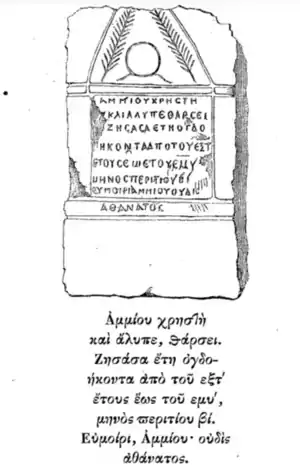 ΑΜΜΙΟΥΧΡΗΣΤΗ
ΚΑΙΑΛΥΠΕΘΑΡΣΕΙ
ΖΗΣΑΣΑΕΤΗΟΓΔΟ
ΗΚΟΝΤΑΑΠΟΤΟΥΕΞΤ
ΕΤΟΥΣΕΩΣΤΟΥΕΜΥ
ΜΗΝΟΣΠΕΡΙΤΙΟΥΒΙ
ΕΥΜΟΙΡΙΑΜΜΙΟΥΟΥΔΙΣ
ΑΘΑΝΑΤΟΣ
Αμμίου χρησ̄ὴ
καὶ ἄλυπε, θάρσει.
Ζησᾶσα ἔτη ὀγδο-
ήκοντα ἀπὸ τοῦ εξτʹ
ἔτους ἕως τοῦ εμυʹ,
μηνὸς περιτίου βί.
Εὐμοίρι, Αμμίου· οὐδὶς
ἀθάνατος.